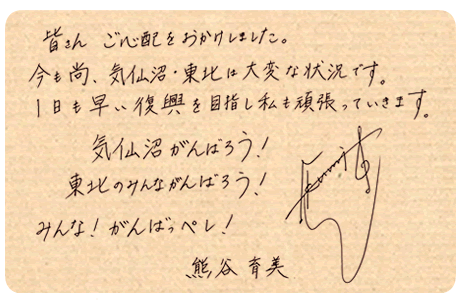 皆さん ご心配をおかけしました。
今も尚、気仙沼・東北は大変な状況です。
1日も早い復興を目指し私も頑張っていきます。
気仙沼がんばろう!
東北のみんながんばろう!
みんな!がんばっぺし!
熊谷育美